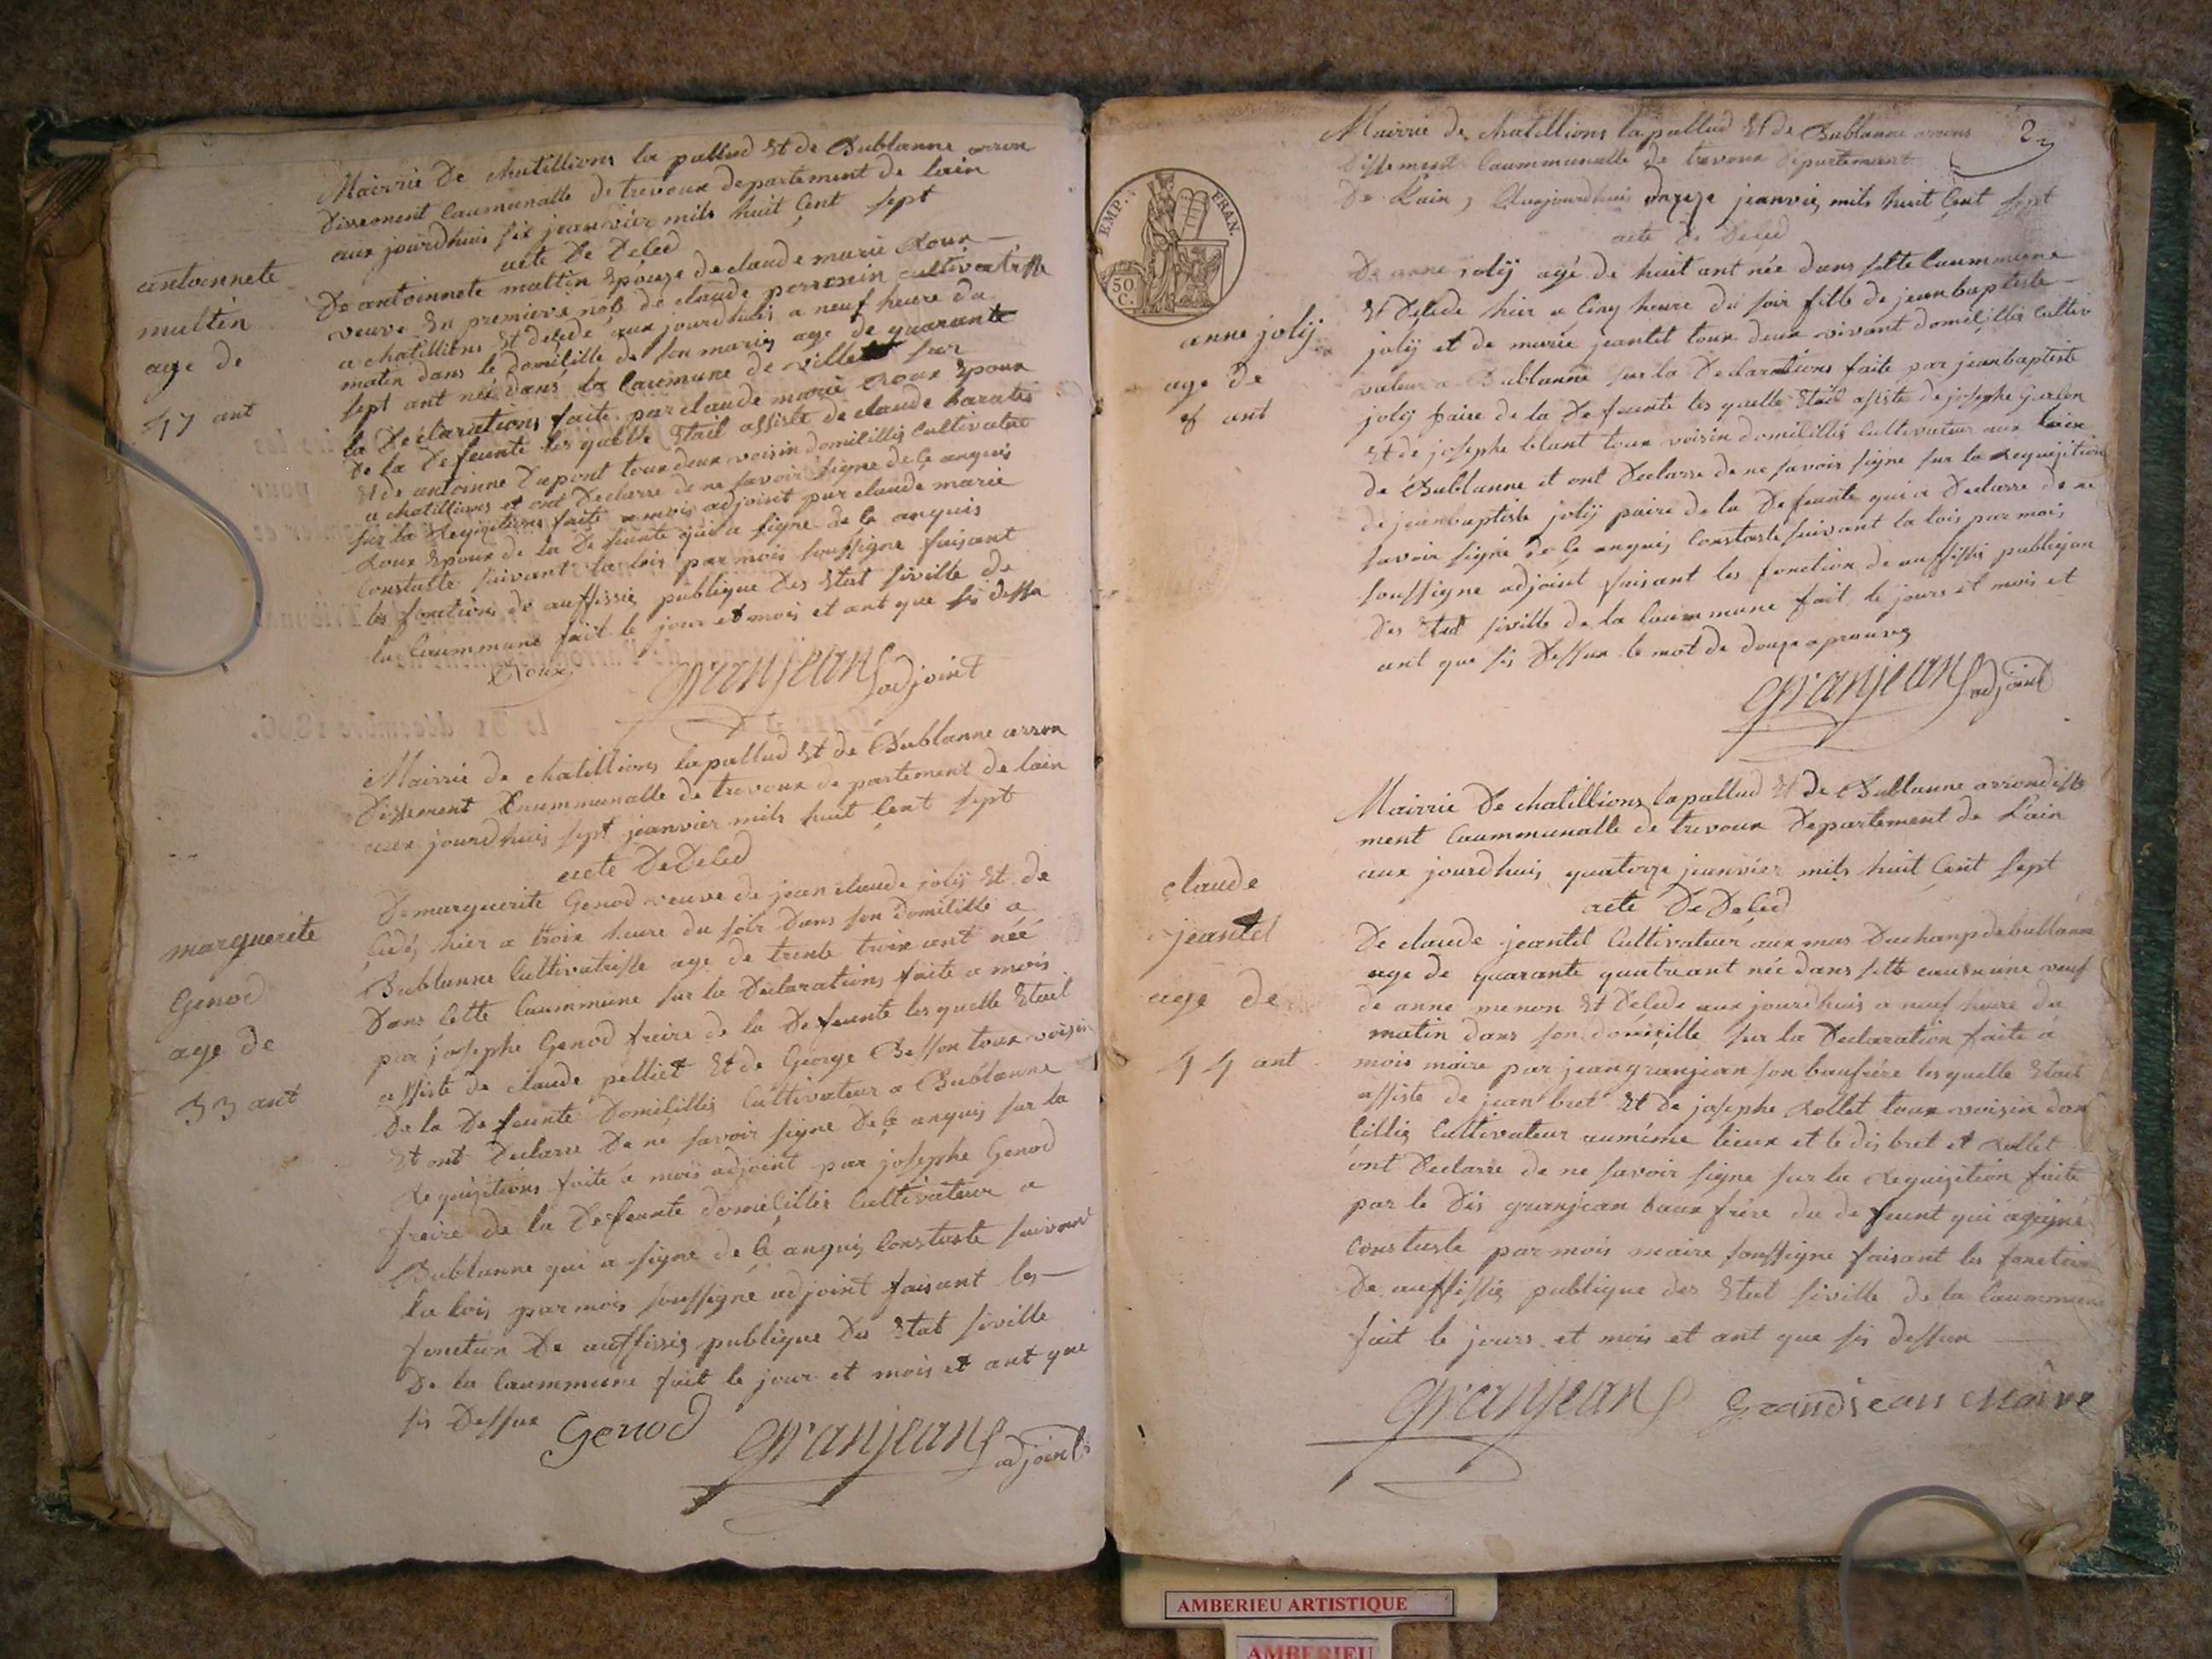 Mairrie De chatillions la pallud Et de Bublanne arron
Dissement Caummunalle de trevoux departement de lain
aux jourdhuis six jeanvier mils huit Cent sept
acte De Deled
antoinnete
mattin
age de
47 ant
De antoinnete mattin Epouze de claude marie Roux
veuve En premiere nose de claude perronin cultivatrisse
a chatillions Et décédé aux jourdhuis a neuf heure du
matin dans le Domilille de son maris age de quarante
sept ant née dans la Caumune de villete sur
la Déclarations faite par claude marie Roux Epoux
De la Defeunte les quelle Etail assiste de claude baratis
Et de antoinne Dupont toux deux voisin domilillis Cultivateur
a chatillions et ont Declarre de ne savoir signe de le anquis
sur la Requzitions faite a mois adjoint par claude marie
Roux Epoux de la Defeunte qui a signe de le anquis
Constatte suivant la lois par mois soussigne faisant
les fonctions de auffissié publique Des Etat siville de
la Caummune fait le jour et mois et ant que sis dessu
Roux granjean adjoint
Mairrie de chatillions la pallud Et de Bublanne arron
Dissement Caummunalle de trevoux departement de lain
aux jourdhuis sept jeanvier mils huit Cent sept
acte De Deled
marguerite
Genod
age de
33 ant
De marguerite Genod veuve de jean claude jolij Et de
Cedé hier a troix heure du soir Dans son domilille a
Bublanne Cultivatrisse age de trente troix ant née
Dans Cette Caummune sur la Déclarations faite a mois
par josephe Genod freire de la Defeunte les quelle Etail
assiste de claude pelliet Et de George Besson toux voisin
De la Defeunte Domilillis Cultivateur a Bublanne
Et ont Declarre De ne savoir signe De le anquis sur la
Requizitions faite a mois adjoint par josephe Genod
freire de la Defeunte domilillis Cultivateur a
Bublanne qui a signe de le anquis Constaste suivant
la lois par mois soussigne adjoint faisant les
fonction De auffissié publique Des Etat siville
De la Caummune fait le jour et mois et ant que
sis Dessux Genod granjean adjoint
2
Mairrie de chatillions la pallud Et de Bublanne arrons
Dissement Caummunalle de trevoux Departement
De Lain, Aujourdhuis douze jeanvié mils huit Cent sept
acte De Deced
EMP. FRAN.
50 C.
anne jolij
age de
8 ant
De anne jolij agé de huit ant née dans sette Caummune
Et Delede hier a Cinq heure du soir fille de jeanbaptiste
jolij et de marie jeantet toux deux vivant domilillis Cultiv
vateur a Bublanne sur la Declarations faite par jeanbaptiste
jolij paire de la Defeunte les quelle Etail assiste de josephe Gurlon
Et de josephe blant toux voisin domilillis Cultivateur aux
de Bublanne et ont Declarre de ne savoir signe sur la Requizition
de jeanbaptiste jolij paire de la Defeunte qui a Declarre de ne
savoir signe de le anquis Constaste suivant la lois par mois
soussigne adjoint faisant les fonction de auffissié publique
Des Etat siville de la Caummune fait le jours et mois et
ant que sis Dessux le mot de douze aprouvez
granjean adjoint
Mairrie De chatillions la pallud Et de Bublanne arrondisse
ment Caummunalle de trevoux Departement de Lain
aux jourdhuis quatorze jeanvier mils huit Cent sept
acte De Deced
claude
jeantel
age de
44 ant
De claude jeantel Cultivateur aux mas Duchamp de bublanne
age de quarante quatre ant née dans sette caumune veuf
de anne menon Et Delede aux jourdhuis a neuf heure du
matin dans son domicille sur la Declaration faite a
mois maire par jean granjean son baufrére les quelle Etait
assiste de jean bret Et de josephe Rollet toux voisin dom
lillis Cultivateur aumême lieux et le dis bret et Rollet
ont Declarre de ne savoir signe sur la Requizition faite
par le Dis granjean baux frére du defeunt qui a signé
Constaste par mois maire soussigne faisant les fonction
De auffissié publique des Etat siville de la Caummune
fait le jours et mois et ant que sis dessux
granjean Grandjean Maire
AMBERIEU ARTISTIQUE
AMBERIEU